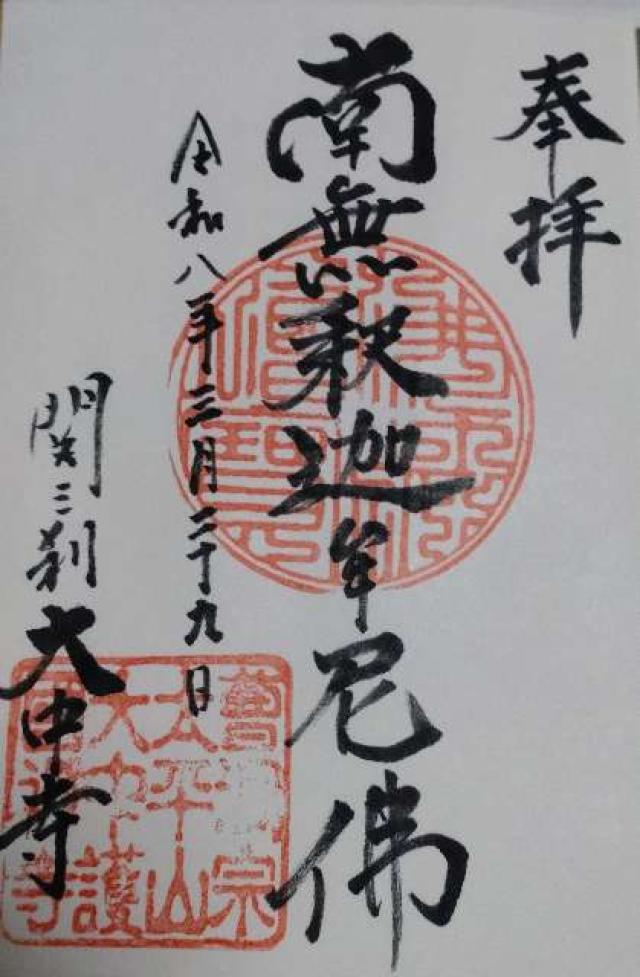 奉拝
南無釈迦牟尼佛
令和八年三月二十九日
関三刹
大中寺
曹洞宗
太平山
大中
護